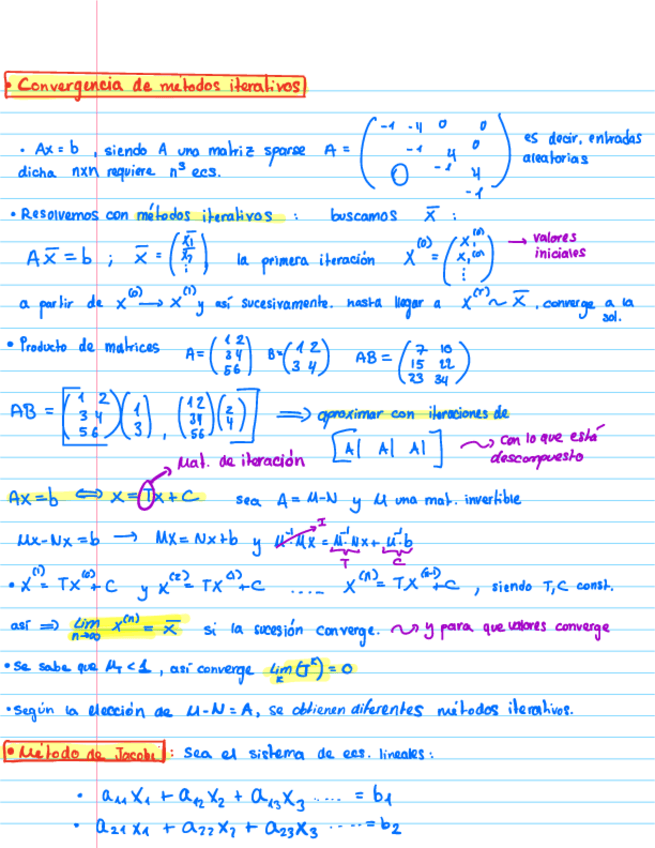 • Convergencia de metodos iterativos
• Ax = b , siendo A una matriz sparse A = ( -1 -4 0 0 / -1 4 0 / 0 -1 4 / -1 ) es decir, entradas aleatorias
dicha nxn requiere n³ ecs.
• Resolvemos con métodos iterativos : buscamos x̄ :
A x̄ = b ; x̄ = ( x̄₁ / x̄₂ / ⋮ ) la primera iteración x⁽⁰⁾ = ( x₁⁽⁰⁾ / x₁⁽⁰⁾ / ⋮ ) → valores iniciales
a partir de x⁽⁰⁾ → x⁽¹⁾ y así sucesivamente. hasta llegar a x⁽ʳ⁾ ~ x̄ , converge a la sol.
• Producto de matrices A = ( 1 2 / 3 4 / 5 6 ) B = ( 1 2 / 3 4 ) AB = ( 7 10 / 15 22 / 23 34 )
AB = [ ( 1 2 / 3 4 / 5 6 ) ( 1 / 3 ) , ( 1 2 / 3 4 / 5 6 ) ( 2 / 4 ) ] ⟹ aproximar con iteraciones de
[ A| A| A| ] ⇝ con lo que está descompuesto
Mat. de iteración
Ax = b ⟺ x = Tx + C sea A = M-N y M una mat. invertible
Mx - Nx = b → Mx = Nx + b y M⁻¹Mx = M⁻¹Nx + M⁻¹b
I T C
• x⁽¹⁾ = Tx⁽⁰⁾ + C y x⁽²⁾ = Tx⁽¹⁾ + C .... x⁽ⁿ⁾ = Tx⁽ⁿ⁻¹⁾ + C , siendo T, C const.
así ⟹ lim n→∞ x⁽ⁿ⁾ = x̄ si la sucesión converge. ⇝ y para que valores converge
• Se sabe que μ_T < 1 , así converge lim k (Tᵏ) = 0
• Según la elección de M-N = A, se obtienen diferentes métodos iterativos.
• Método de Jacobi : Sea el sistema de ecs. lineales :
• a₁₁x₁ + a₁₂x₂ + a₁₃x₃ ..... = b₁
• a₂₁x₁ + a₂₂x₂ + a₂₃x₃ ..... = b₂